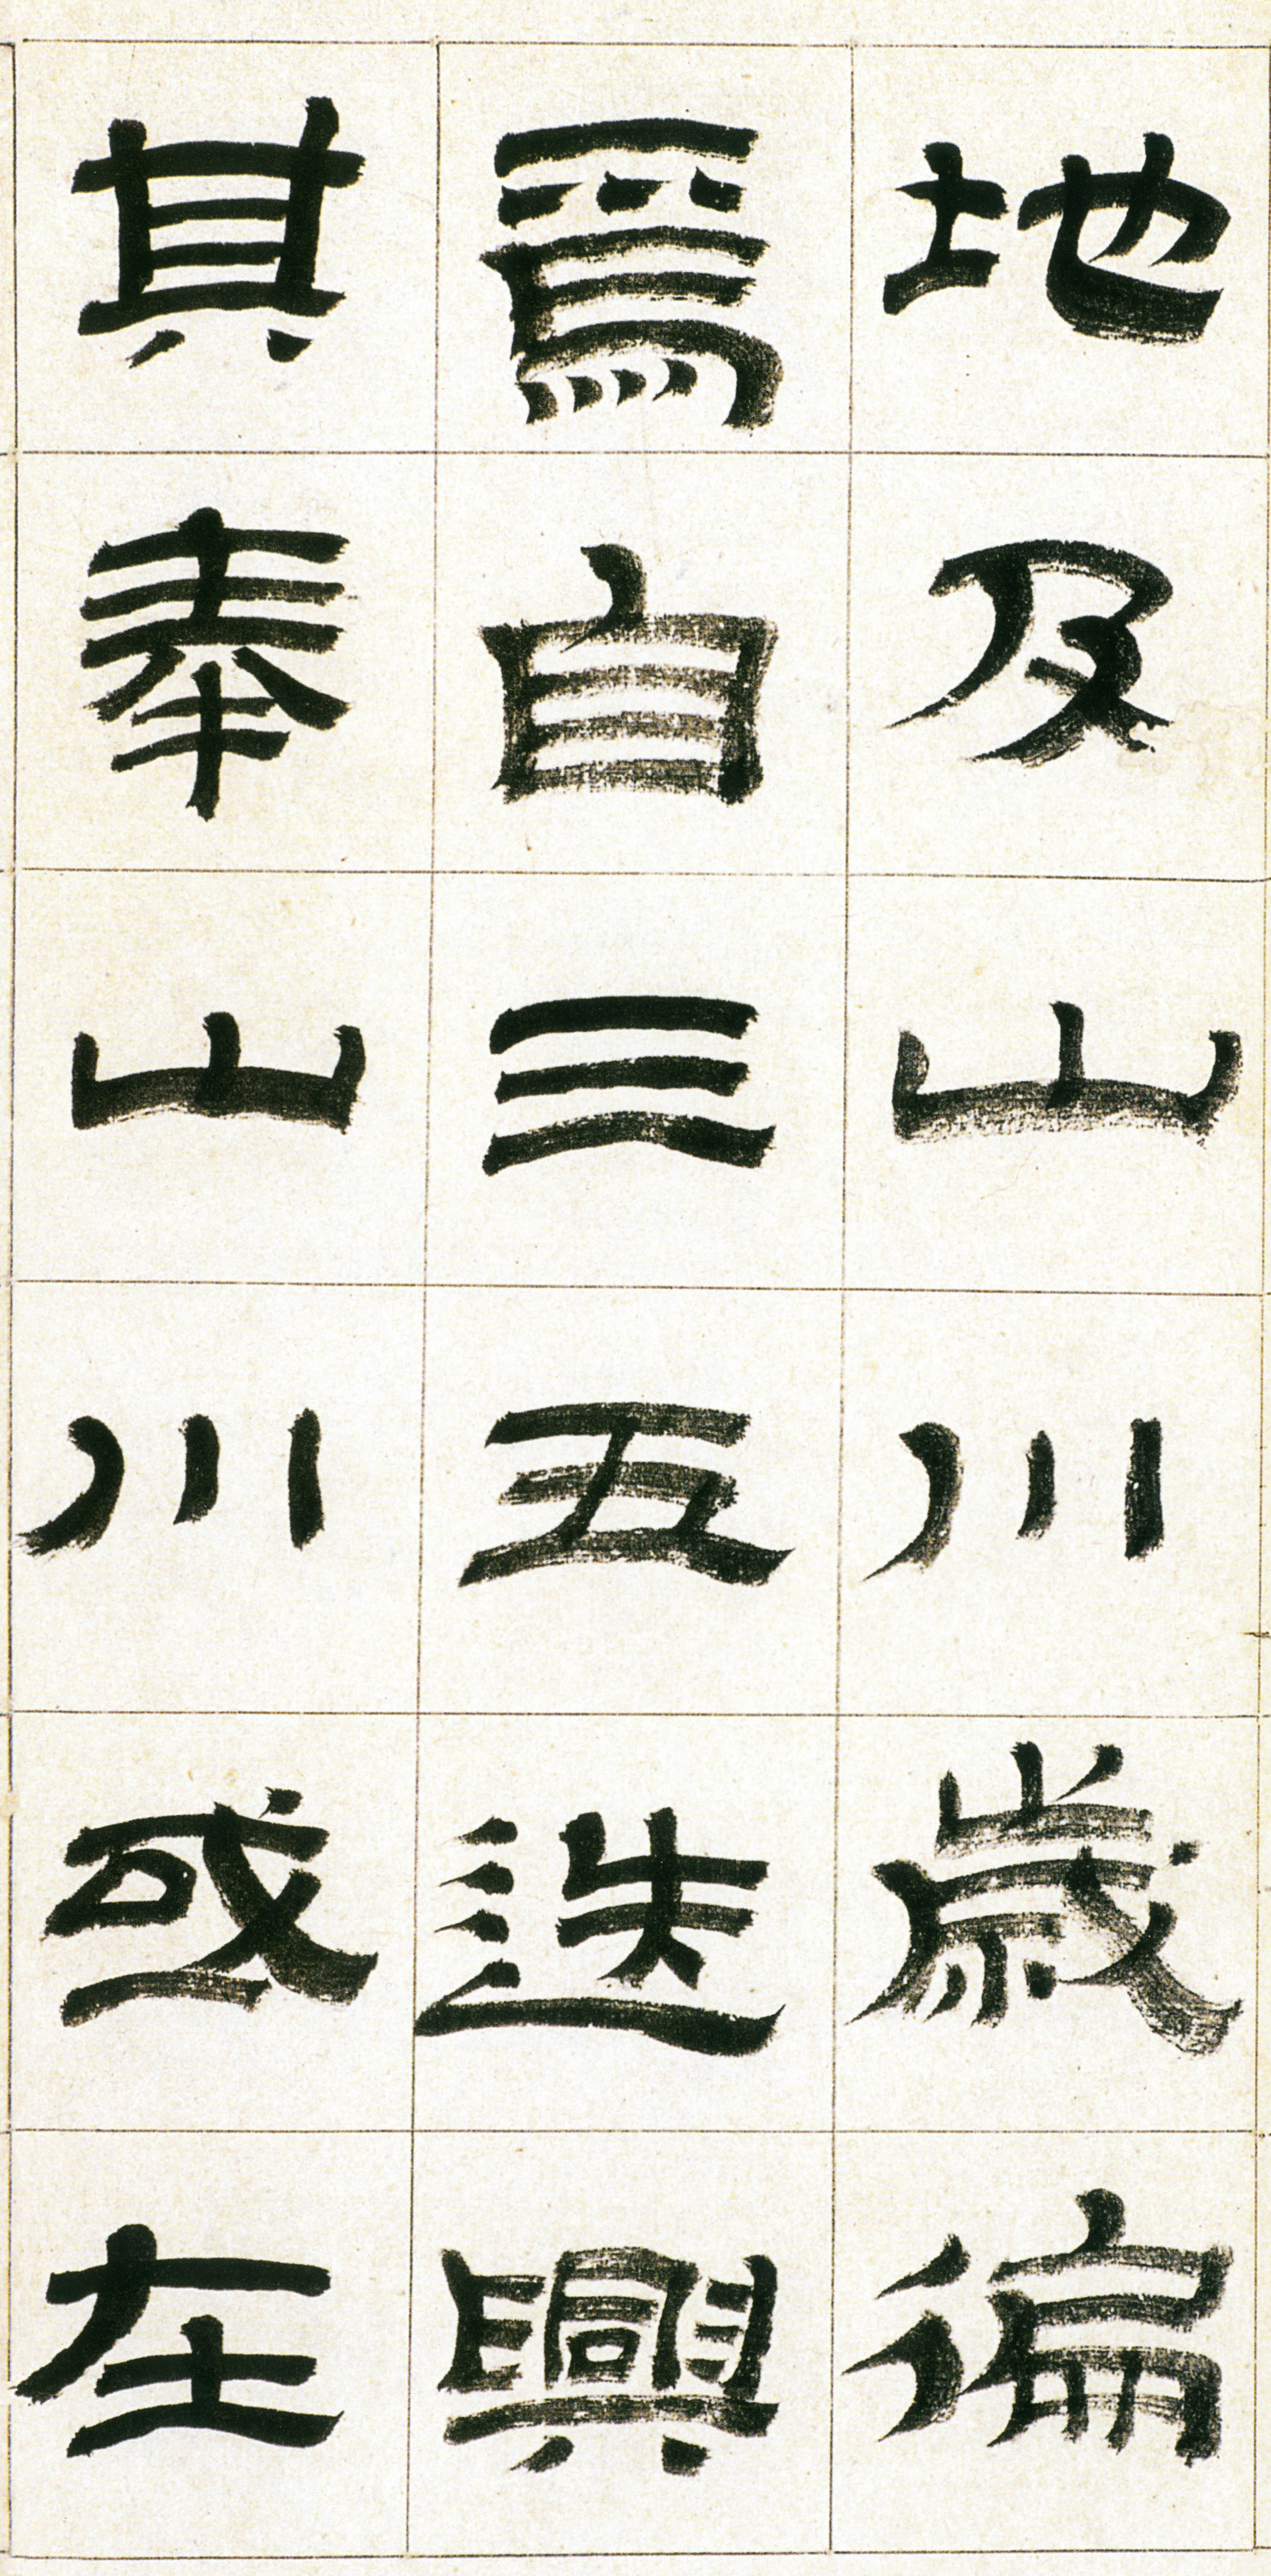 地及山川歲徧
焉自三五迭興
其奉山川或在